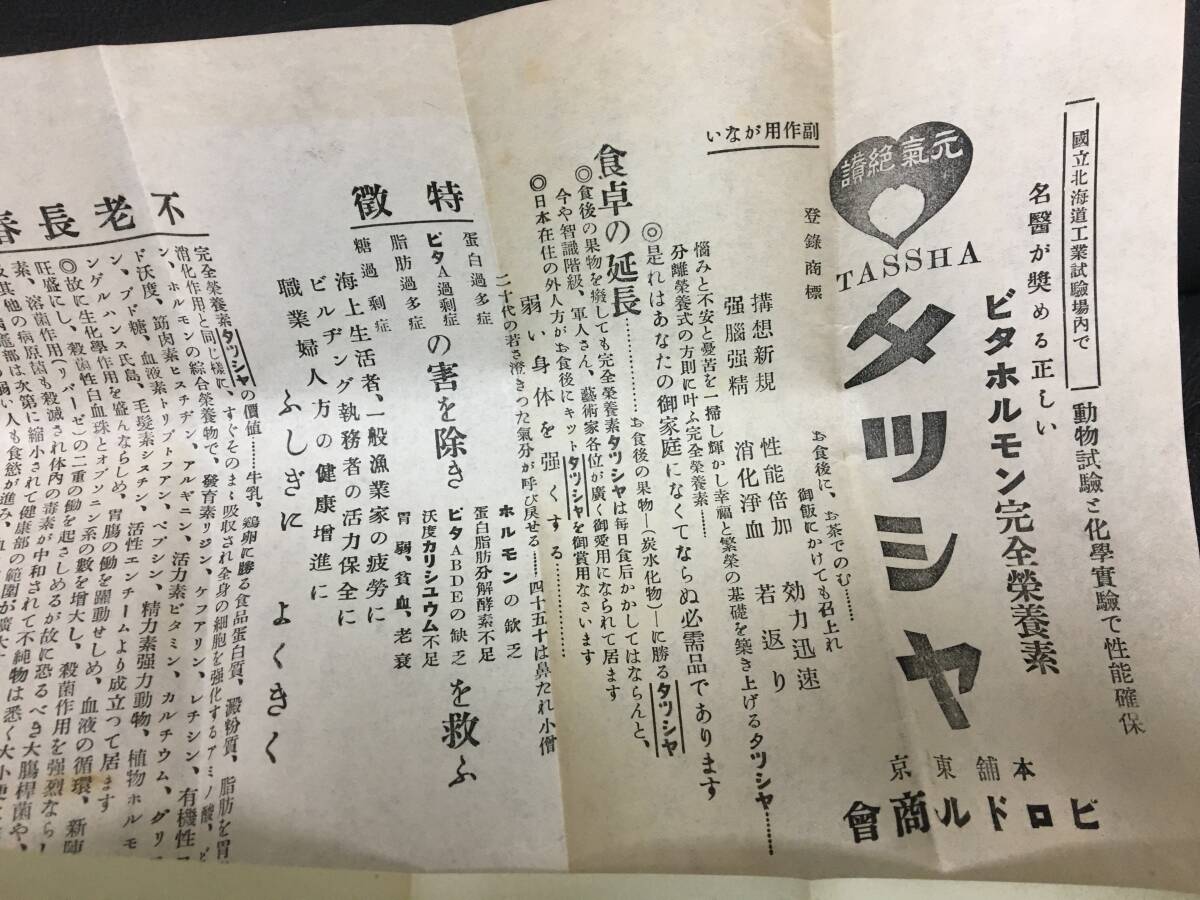 國立北海道工業試驗場內で
動物試驗と化學實驗で性能確保
名醫が奬める正しい
ビタホルモン完全榮養素
元氣絶讃
TASSHA
タツシヤ
本舗東京
ビロドル商會
登錄商標
お食後に、お茶でのむ……
御飯にかけても召上れ
副作用がない
搆想新規 性能倍加 効力迅速
强腦强精 消化淨血 若返り
惱みと不安と憂苦を一掃し輝かし幸福と繁榮の基礎を築き上げるタツシヤ……
分離榮養式の方則に叶ふ完全榮養素……
◎是れはあなたの御家庭になくてならぬ必需品であります
食卓の延長……お食後の果物―(炭水化物)―に勝るタツシヤ
◎食後の果物を癈しても完全榮養素タツシヤは毎日食后かかしてはならんと、
今や智識階級、軍人さん、藝術家各位が廣く御愛用になられて居ます
◎日本在住の外人方がお食後にキットタツシヤを御賞用なさいます
弱い身体を强くする……
二十代の若さ澄きつた氣分が呼び戾せる……四十五十は鼻たれ小僧
特徴
蛋白過多症
ビタA過剩症
脂肪過多症
糖過剩症
の害を除き
ホルモンの飮乏
蛋白脂肪分解酵素不足
ビタABDEの缺乏
沃度カリシユウム不足
胃弱、貧血、老衰
を救ふ
海上生活者、一般漁業家の疲勞に
ビルヂング執務者の活力保全に
職業婦人方の健康增進に
ふしぎに よくきく
不老長春
完全榮養素タツシヤの價値……牛乳、鷄卵に勝る食品蛋白質、澱粉質、脂肪を胃
消化作用と同じ樣に、すぐそのまゝ吸收され全身の細胞を强化するアミノ酸、ビ
ン、ホルモンの綜合榮養物で、發育素リジン、ケフアリン、レチシン、有機性
ド沃度、筋肉素ヒスチヂン、アルギニン、活力素ビタミン、カルチウム、グリ
ン、ブド糖、血液素トリプトフアン、ペプシン、精力素强力動物、植物ホルモ
ングルハンス氏島、毛髮素シスチン、活性エンチームより成立つて居ます
◎故に生化學作用を盛んならしめ、胃腸の働を躍動せしめ、血液の循環、新陳
旺盛にし、殺菌性白血球とオプソニン系の數を增大し、殺菌作用を强烈なら
素、溶菌作用(リパーゼ)の二重の働を起さしめるが故に恐るべき大腸桿菌や、
及其他の病原菌も殺滅され体內の毒素が中和されて不純物は悉く大小便
病竈部は次第に縮小されて健康部の範圍が廣大
の弱い人も食慾が進み、